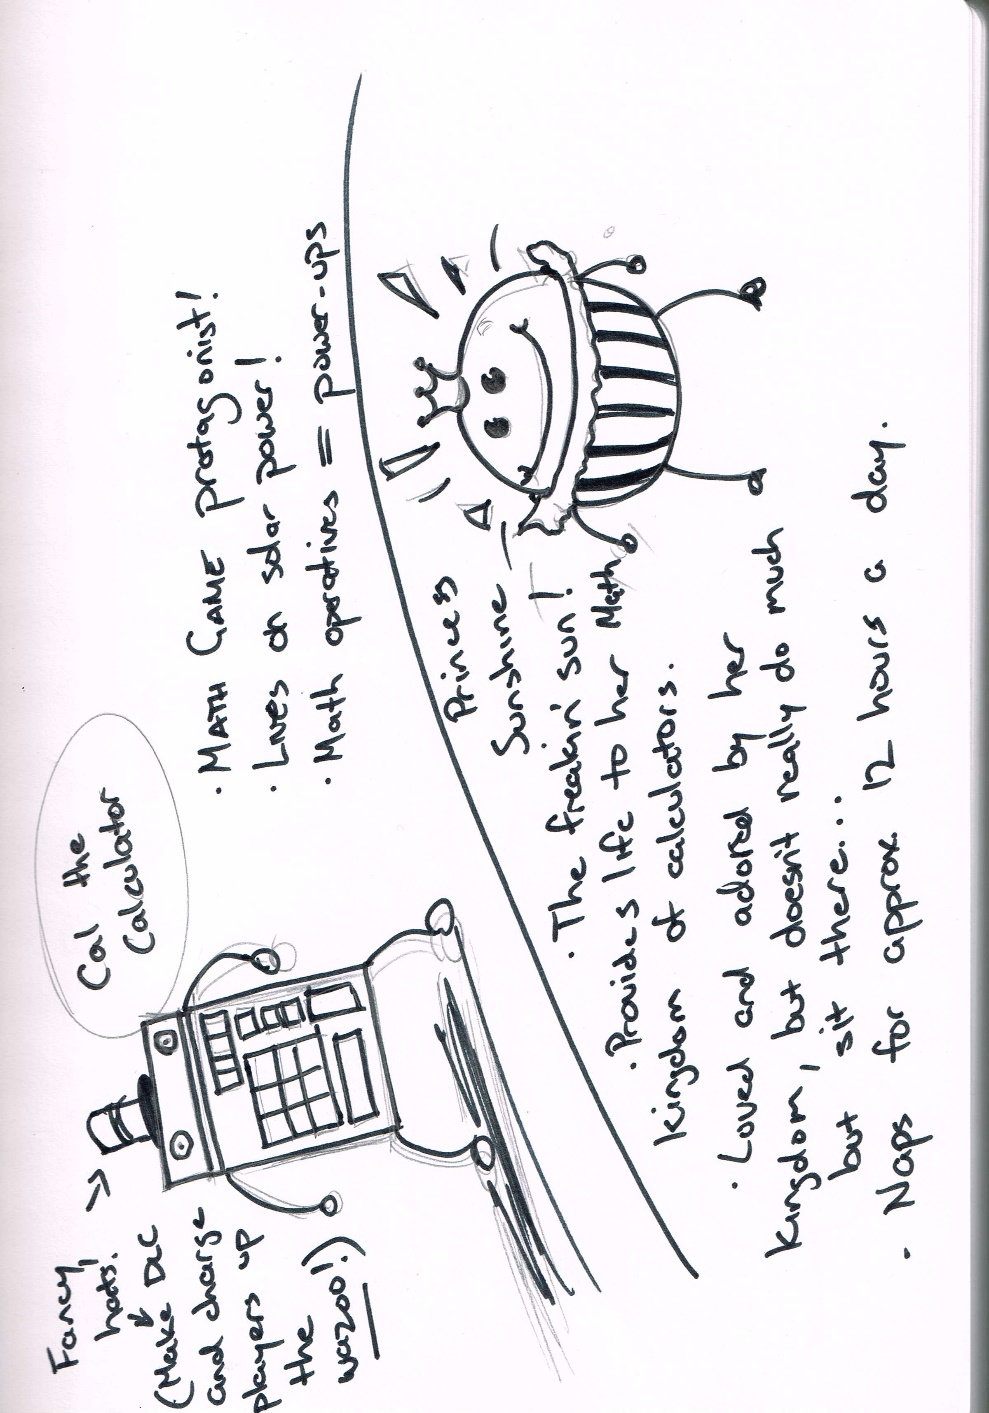 Fancy
hats!
(Make DLC
and charge
players up
the
wazoo!)
Cal the
Calculator
· MATH GAME protagonist!
· Lives on solar power!
· Math operatives = power-ups
Princess
Sunshine
· The freakin' sun!
· Provides life to her Math
Kingdom of calculators.
· Loved and adored by her
Kingdom, but doesn't really do much
but sit there...
· Naps for approx. 12 hours a day.